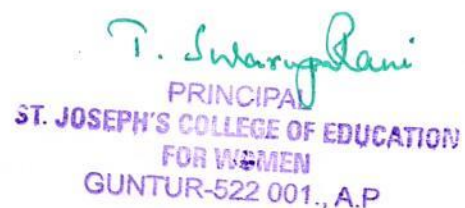 T. Swarupa Rani
PRINCIPAL
ST. JOSEPH'S COLLEGE OF EDUCATION
FOR WOMEN
GUNTUR-522 001., A.P